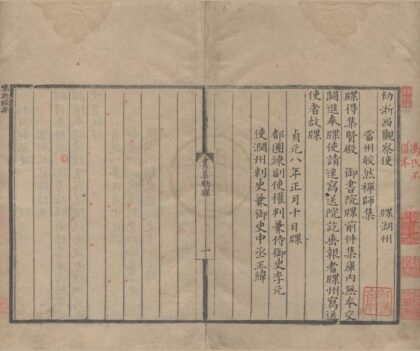 勅浙西觀察使　牒湖州
當州皎然禪師集
牒得集賢殿　御書院牒前件集庫內無本交
闕進奉牒使請速寫送院訖垂報者牒州寫送
使者故牒
貞元八年正月十日牒
都團練副使權判兼侍御史李元
使潤州刺史兼御史中丞王緯
一